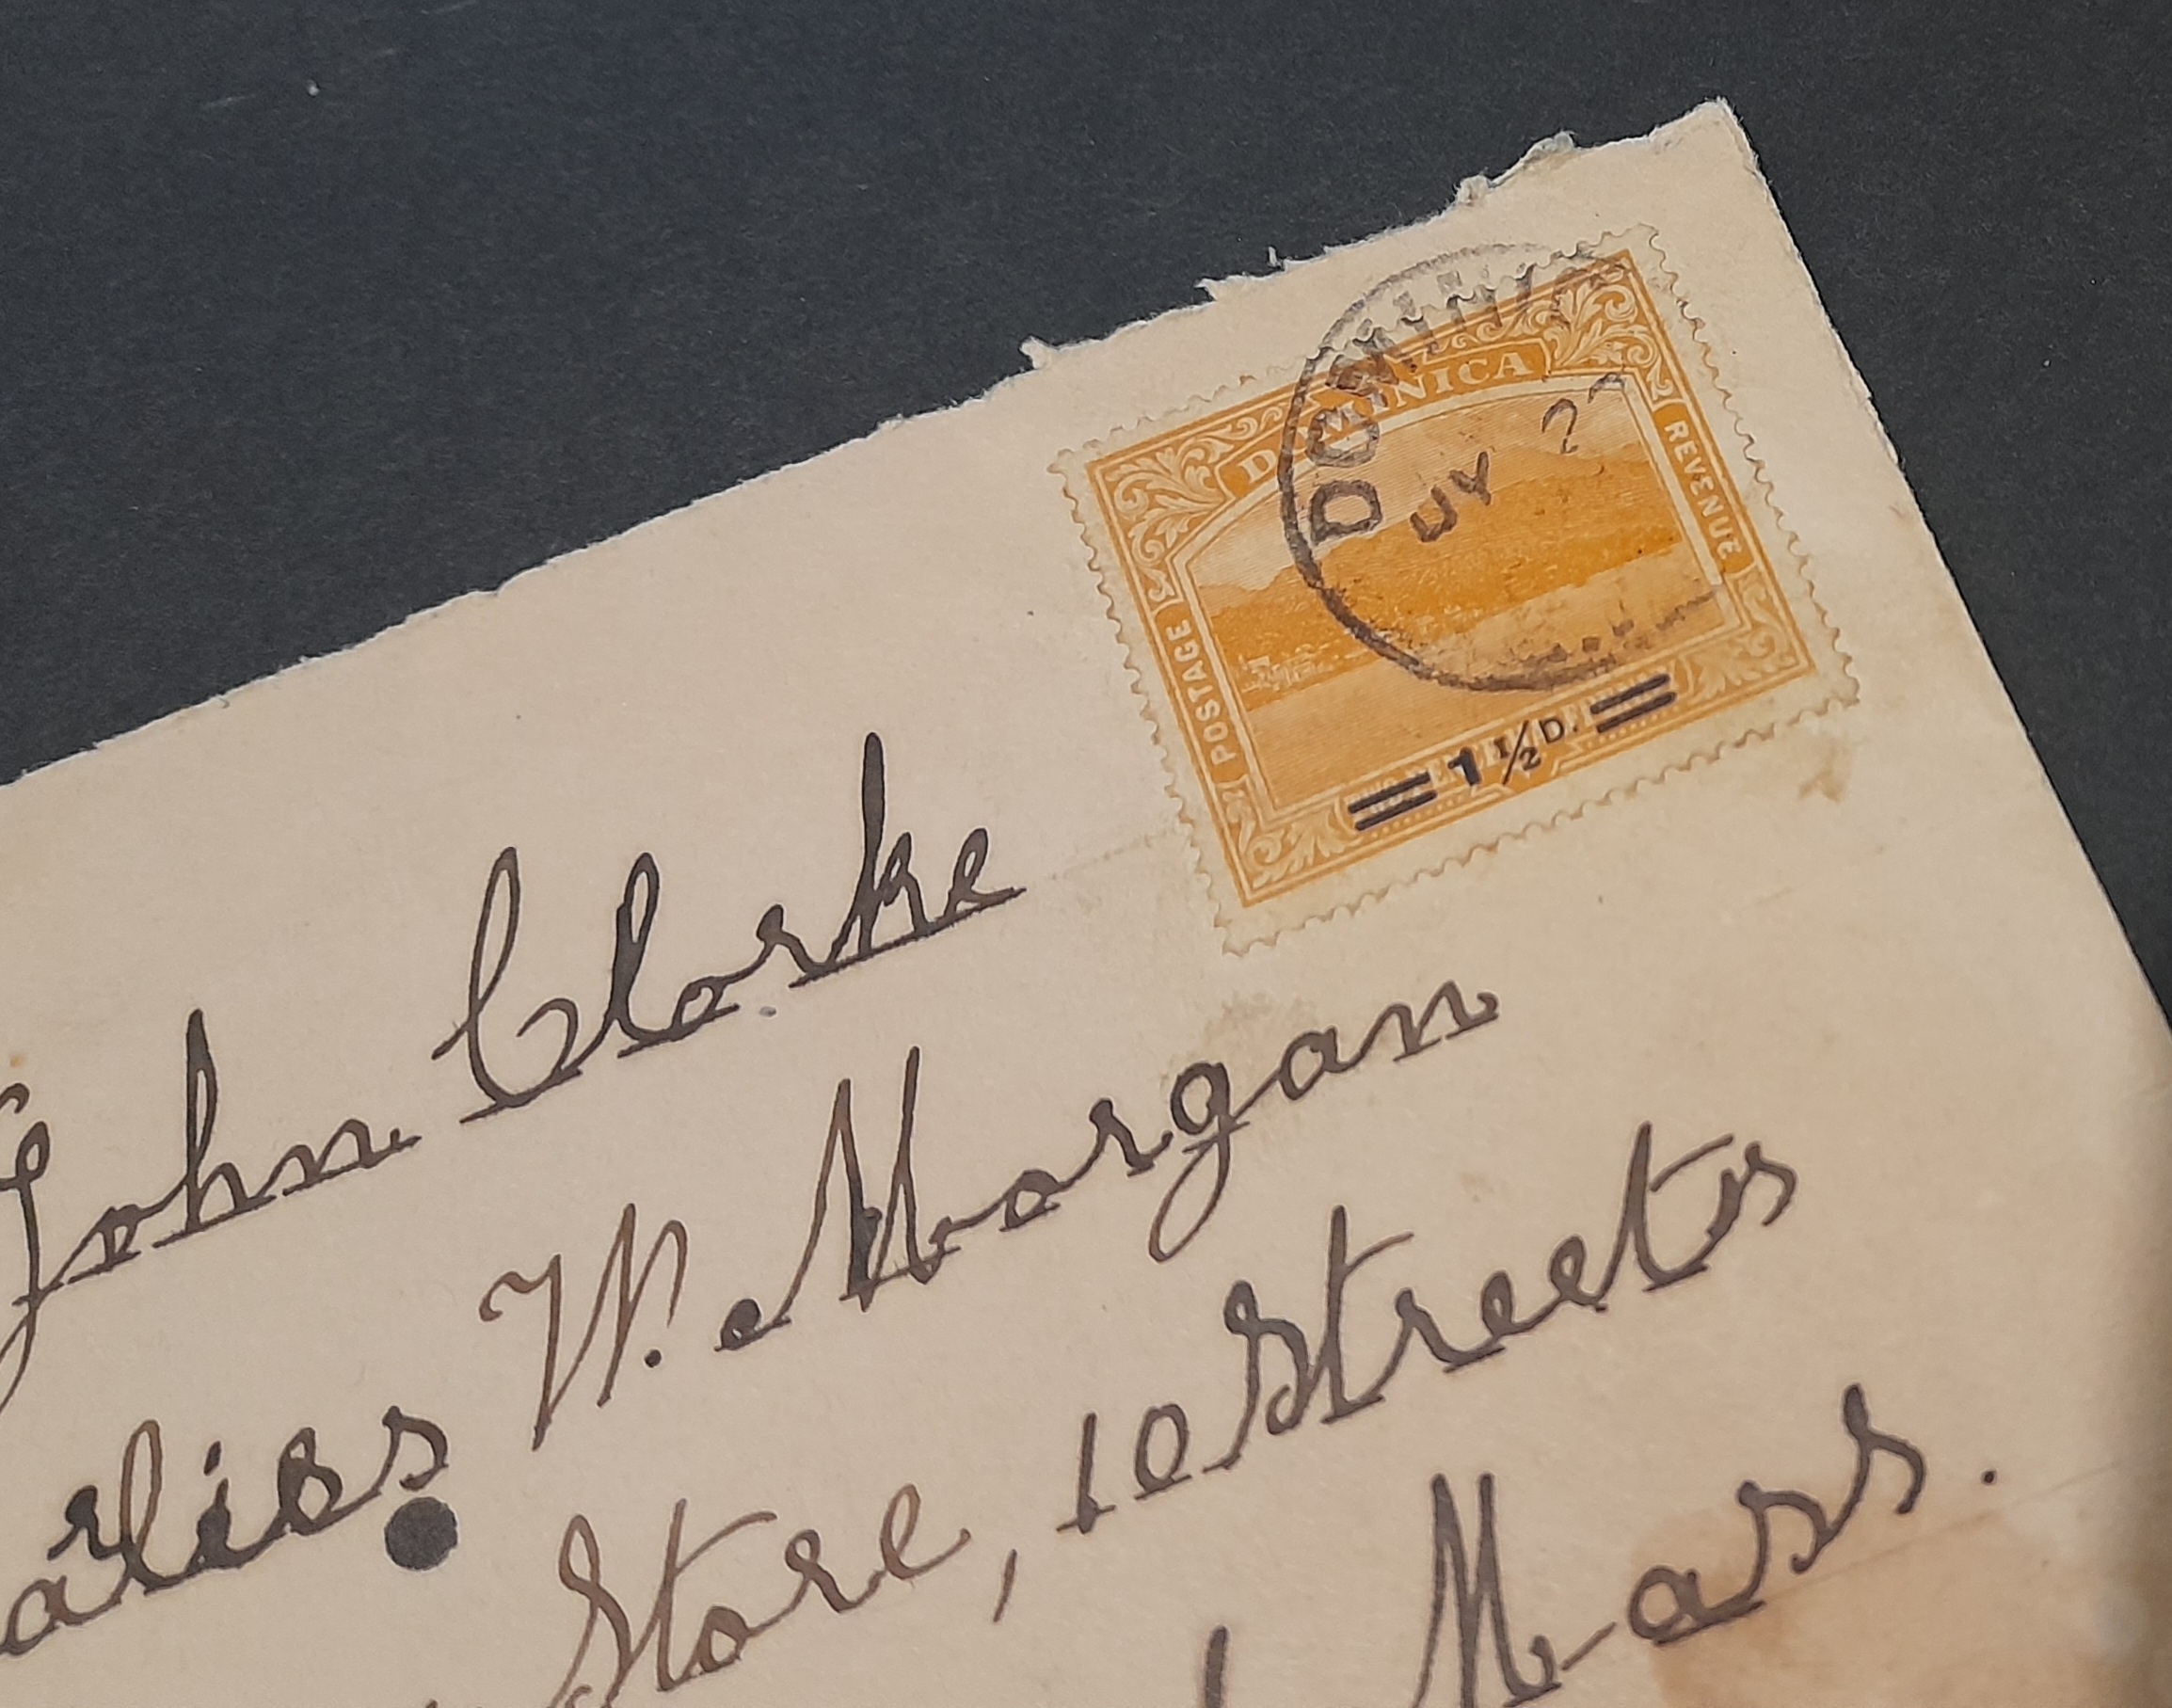 DOMINICA
JY 2
DOMINICA
POSTAGE
REVENUE
1 1/2 D.
John Clarke
W. Morgan
Store, 10 Streets
Mass.